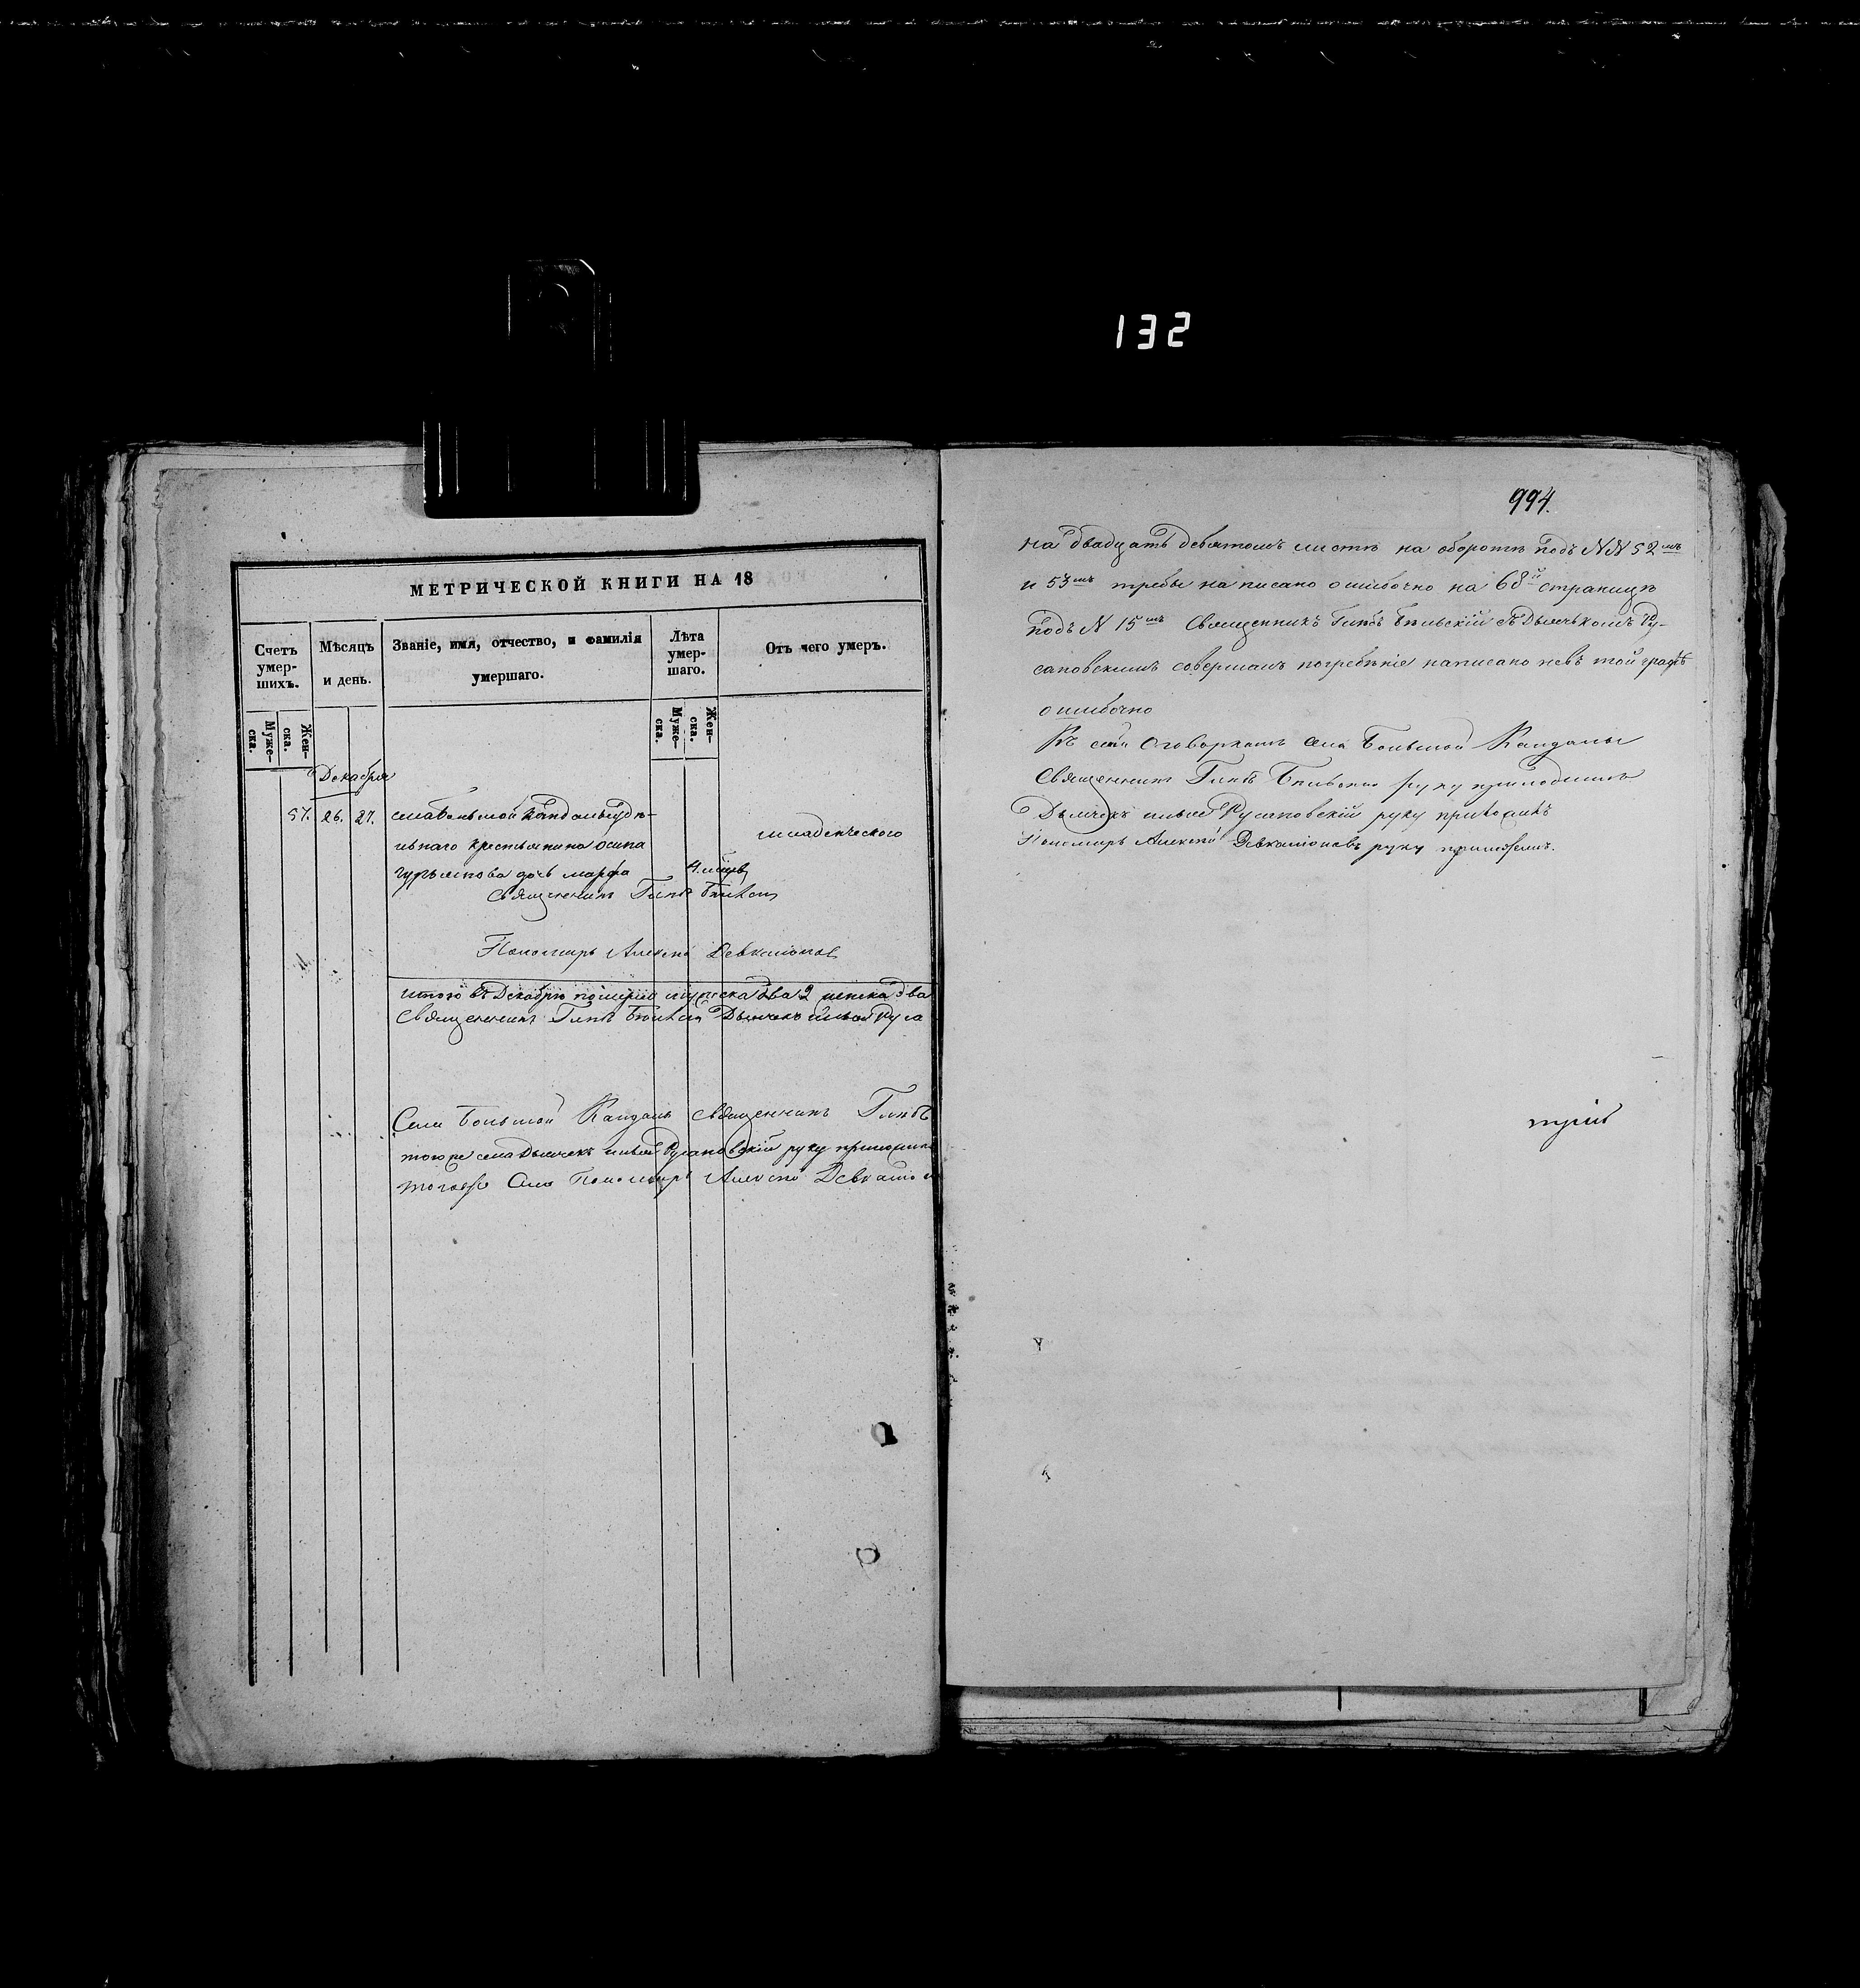 132
МЕТРИЧЕСКОЙ КНИГИ НА 18
Счетъ умер-шихъ.
Мѣсяцъ и день.
Званіе, имя, отчество, и фамилія умершаго.
Лѣта умер-шаго.
Отъ чего умеръ.
Муже-ска.
Жен-ска.
Муже-ска.
Жен-ска.
Декабря
57. 26. 27. села Большой Кандалы удѣ-
льнаго крестьянина Осипа младенческаго
Гурьянова дочь Марфа 4. мѣсяц
Священникъ Глѣбъ
Пономарь Алексѣй Девкалионов
итого въ Декабрѣ померло мужеска два 2 женска два
Священникъ Глѣбъ Дьячекъ Руса
Села Большой Кандалы священникъ Глѣбъ
тогоже села Дьячекъ Русановскій руку приложилъ
тогоже села Пономарь Алексѣй Девкалио
994.
на двадцать девятомъ листѣ на оборотѣ подъ NN 52мъ
и 53мъ требы написано ошибочно на 68й страницѣ
подъ N 15мъ Священникъ Глѣбъ Бѣльскій съ Дьячькомъ Ру-
сановскимъ совершалъ погребѣніе написано невъ той графѣ
ошибочно
Къ сей оговоркамъ села Большой Кандалы
Священникъ Глѣбъ Бѣльскій руку приложилъ
Дьячекъ Русановскій руку приложилъ
Пономарь Алексѣй Девкалионовъ руку приложилъ.